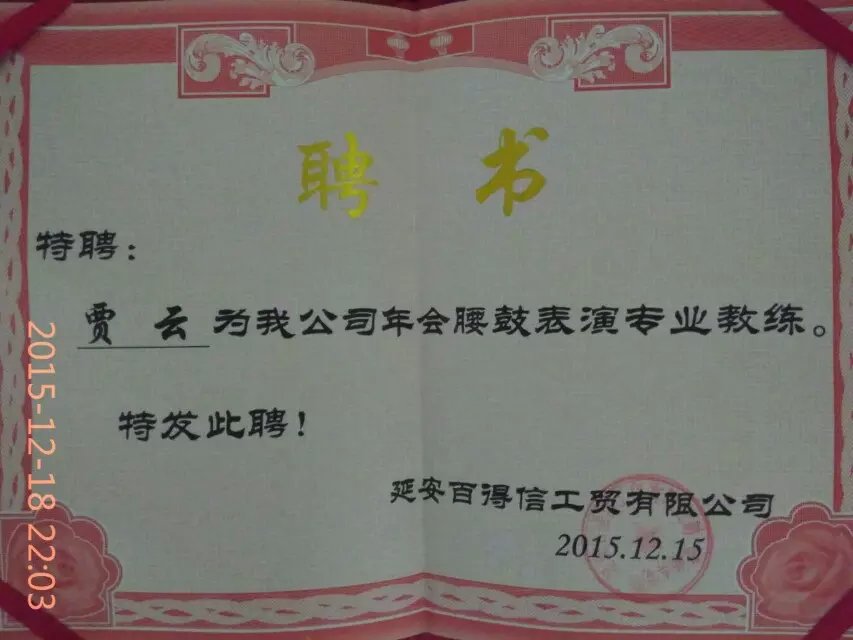 聘 书
特聘：
贾 云 为我公司年会腰鼓表演专业教练。
特发此聘！
延安百得信工贸有限公司
2015.12.15
2015-12-18 22:03